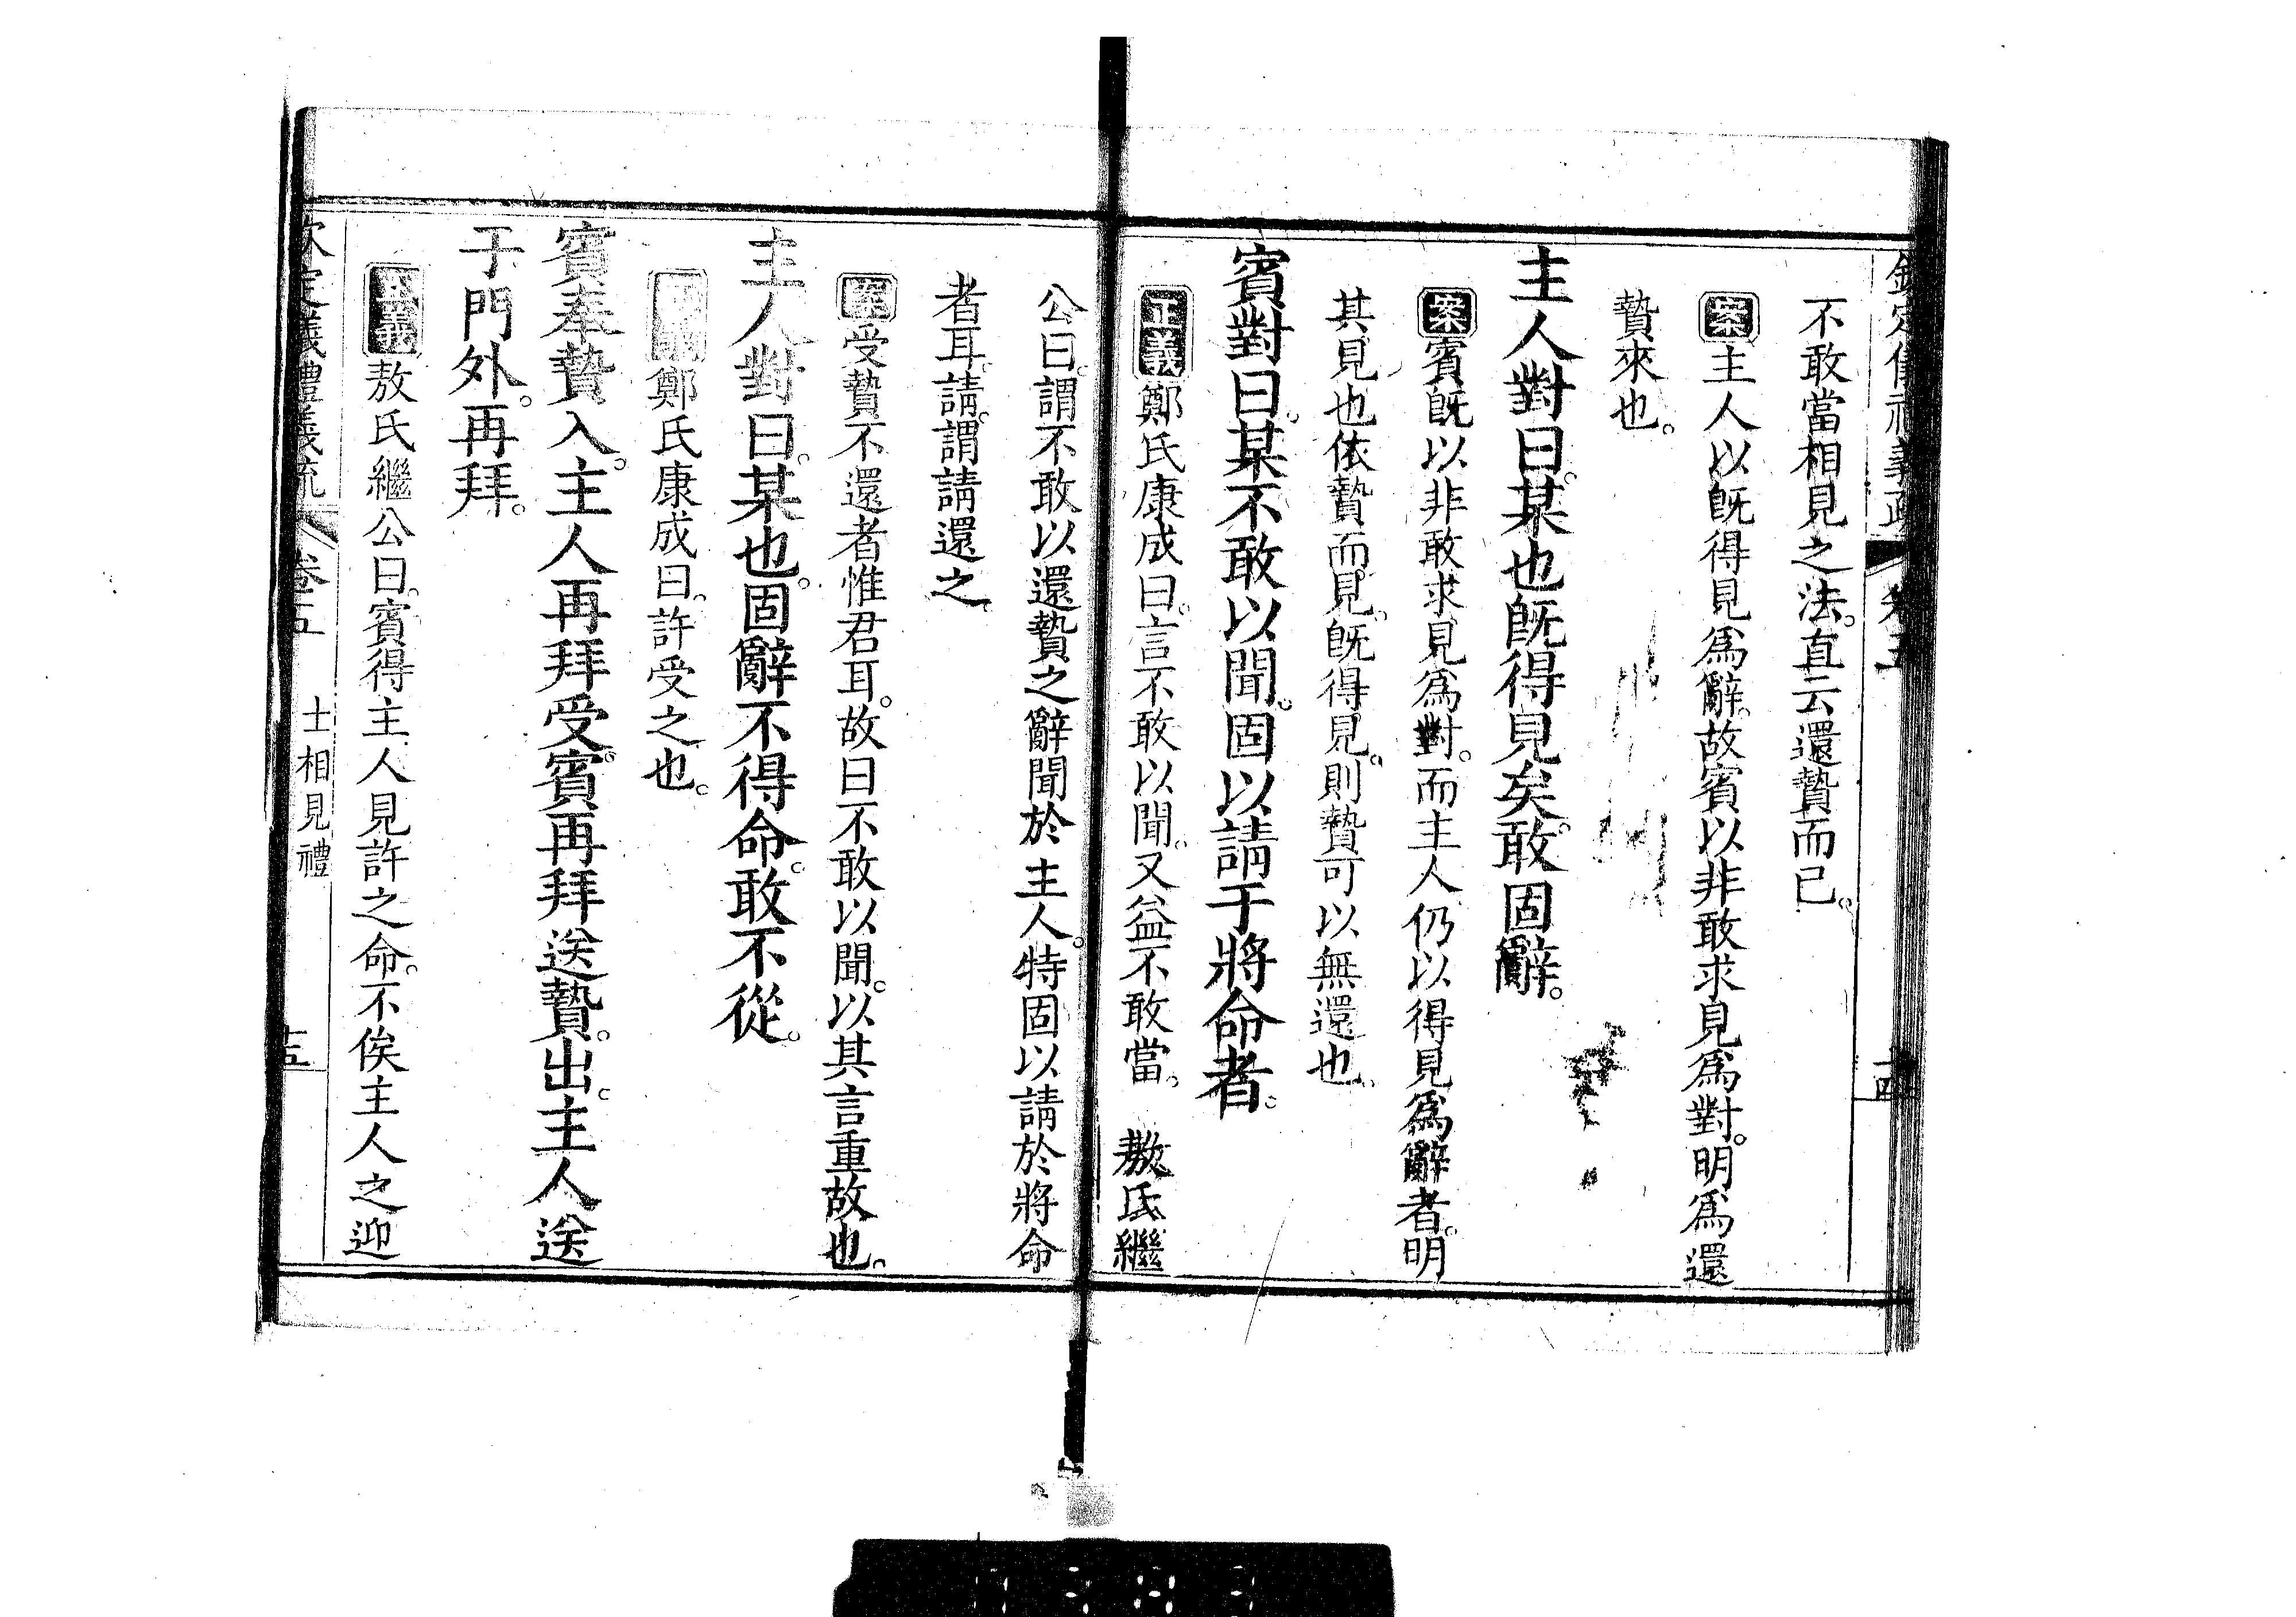 欽定儀禮義疏 卷五 十四
不敢當相見之法。直云還贄而已。
案主人以旣得見爲辭。故賓以非敢求見爲對。明爲還
贄來也。
主人對曰。某也旣得見矣。敢固辭。
案賓旣以非敢求見爲對。而主人仍以得見爲辭者。明
其見也依贄而見。旣得見。則贄可以無還也。
賓對曰。某不敢以聞。固以請于將命者。
正義鄭氏康成曰。言不敢以聞。又益不敢當。 敖氏繼
公曰。謂不敢以還贄之辭聞於主人。特固以請於將命
者耳。請。謂請還之。
案受贄不還者惟君耳。故曰不敢以聞。以其言重故也。
主人對曰。某也。固辭不得命。敢不從。
正義鄭氏康成曰。許受之也。
賓奉贄入。主人再拜受。賓再拜送贄。出。主人送
于門外。再拜。
正義敖氏繼公曰。賓得主人見許之命。不俟主人之迎
欽定儀禮義疏 卷五 士相見禮 十五